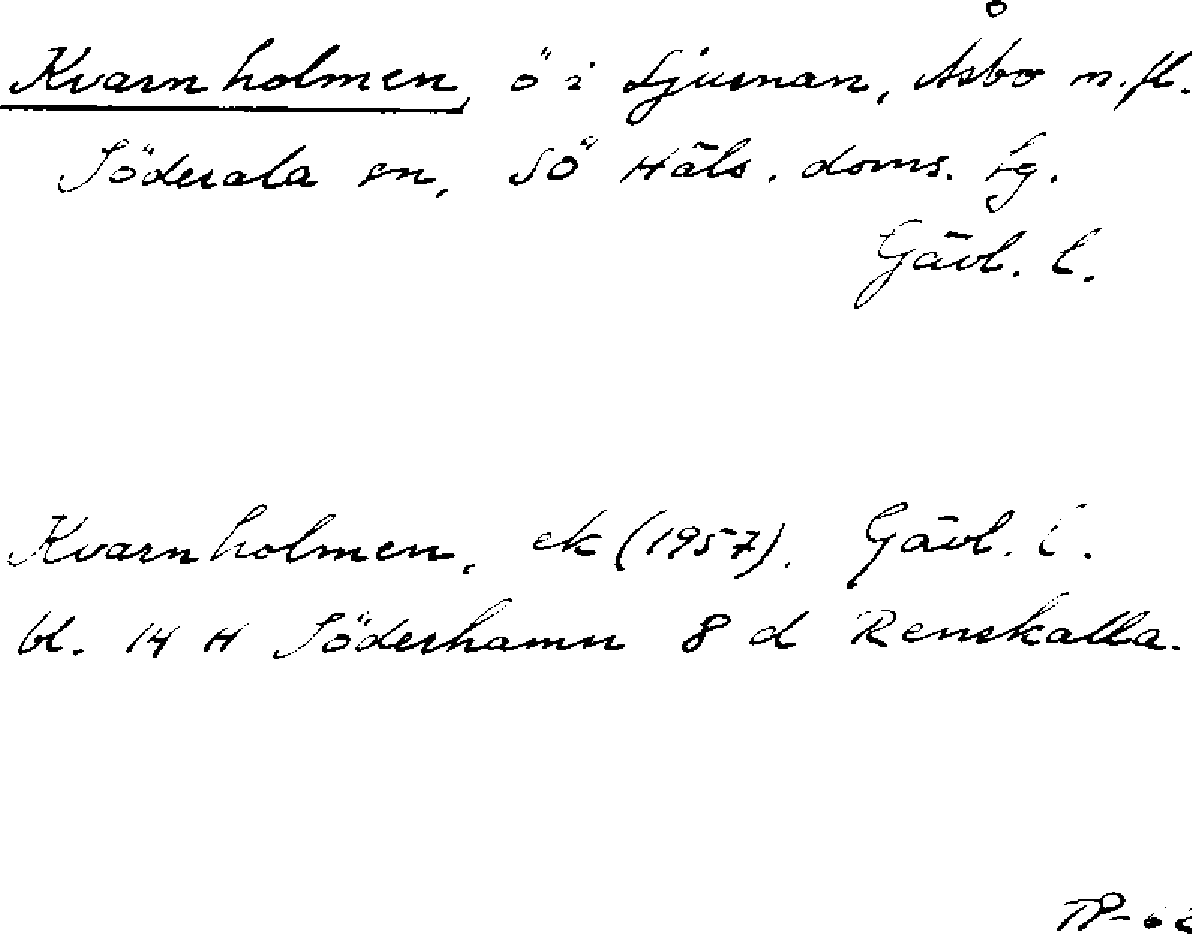 Kvarnholmen, ö i Ljusnan, Åsbo m.fl.
Söderala sn, SÖ Häls. doms. lg.
Gävl. l.
Kvarnholmen, ek (1957). Gävl. l.
bl. 14 H Söderhamn 8 d Renskalla.